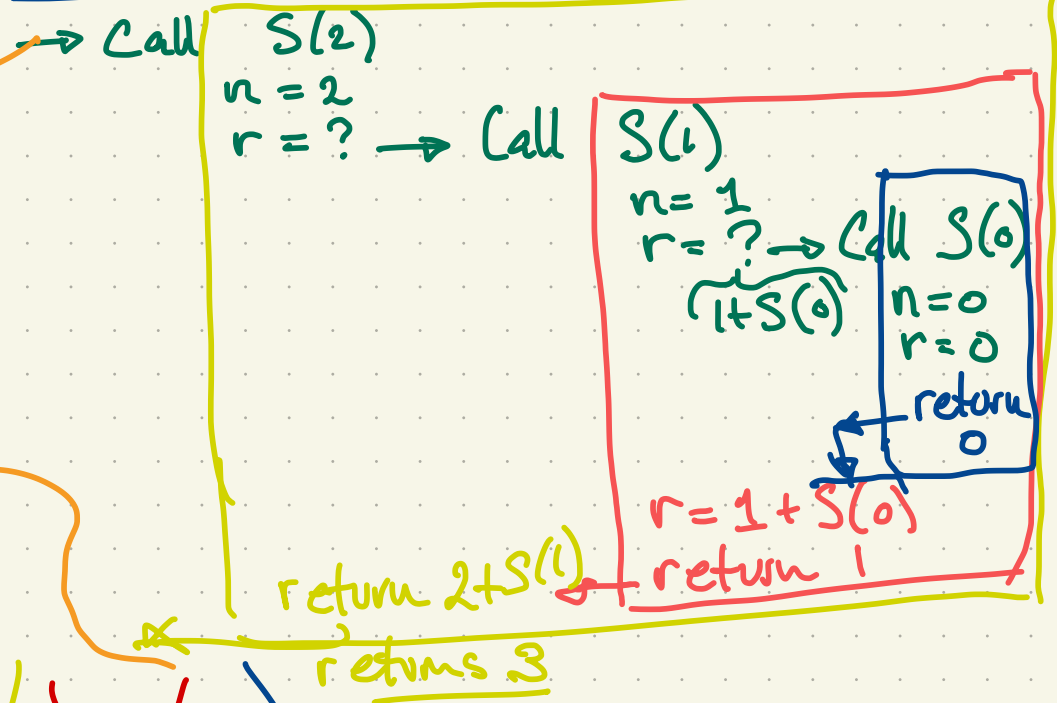 → Call S(2)
n = 2
r = ? → Call S(1)
n = 1
r = ? → Call S(0)
1+S(0)
n=0
r=0
return
0
r = 1 + S(0)
return 1
return 2+S(1)
returns 3